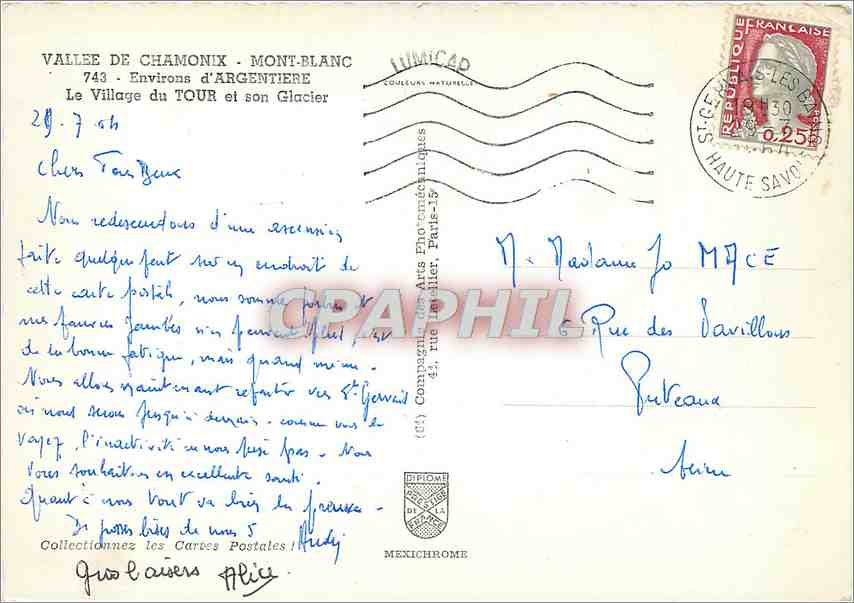 VALLEE DE CHAMONIX - MONT-BLANC
743 - Environs d'ARGENTIERE
Le Village du TOUR et son Glacier
LUMICAP
COULEURS NATURELLES
REPUBLIQUE FRANCAISE
0,25
ST-GERVAIS-LES-BAINS
HAUTE SAVOIE
29.7.64
Chers Tous Deux
Nous redescendons d'une ascension
faite quelque part sur un endroit de
cette carte postale, nous sommes et
mes pauvres jambes n'en peuvent plus
de la bonne fatigue, mais quand même.
Nous allons maintenant repartir vers St Gervais
où nous serons jusqu'à demain - comme vous le
voyez, l'inactivité ne nous pèse pas - Nous
vous souhaitons en excellente santé.
Quant à nous tout va bien la preuve -
De grosses bises de nous 5 Andy
Collectionnez les Cartes Postales !
Gros baisers Alice.
(GI) Compagnie des Arts Photomécaniques
44, rue Letellier, Paris-15e
DIPLOME
PRESTIGE
DE LA
FRANCE
MEXICHROME
M. Madame Jo MACE
6 Rue des Pavillons
Puteaux
Seine
CPAPHIL